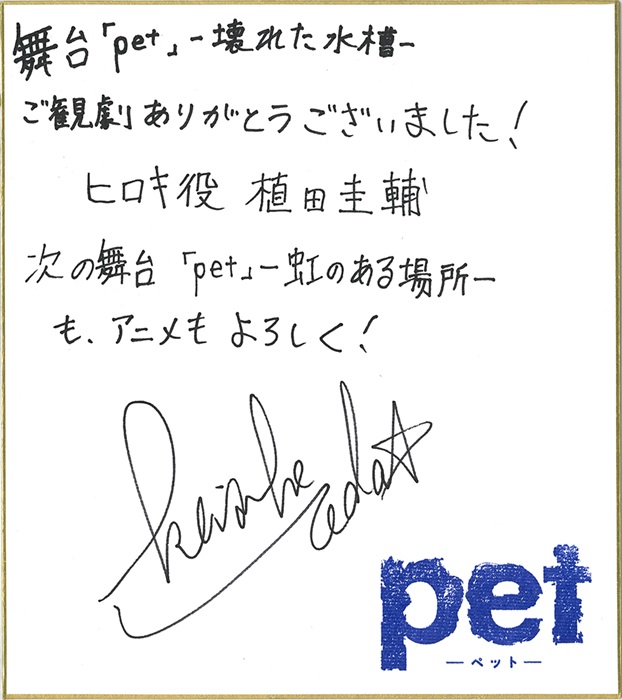 舞台「pet」ー壊れた水槽ー
ご観劇ありがとうございました！
ヒロキ役 植田圭輔
次の舞台「pet」ー虹のある場所ー
も、アニメもよろしく！
Keisuke Ueda☆
pet
ーペットー